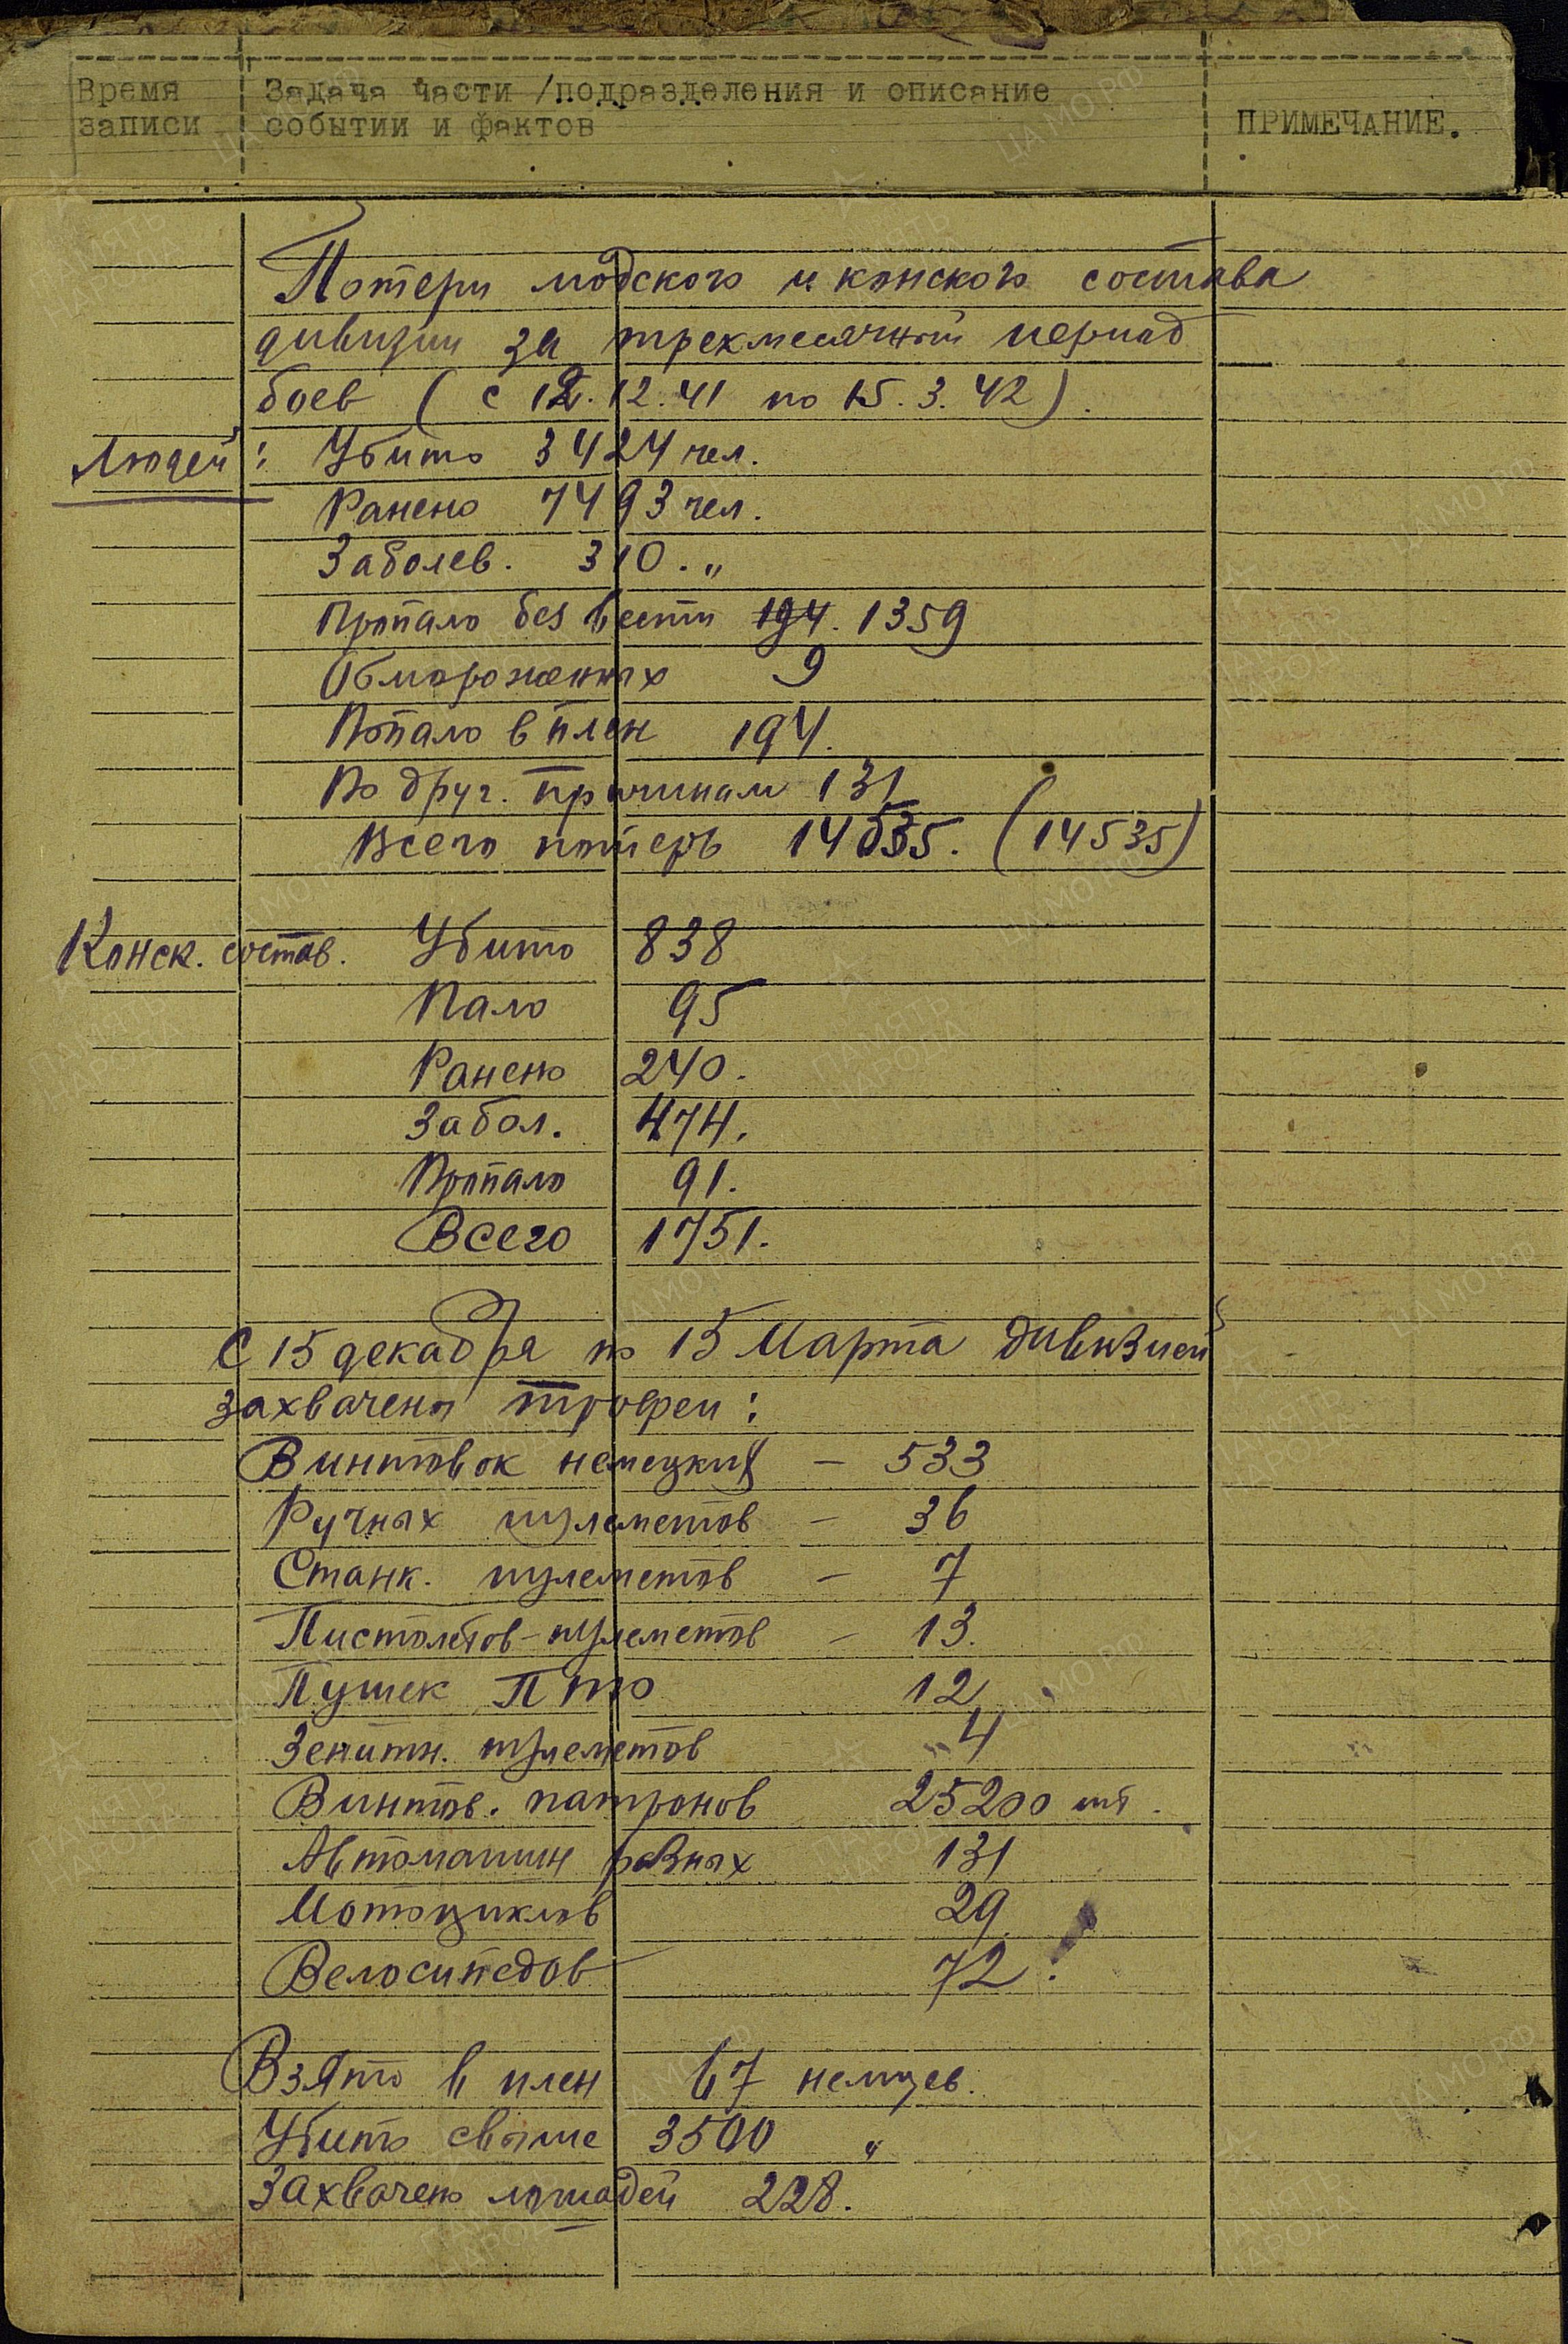 Время записи
Задача части /подразделения и описание
событии и фактов
ПРИМЕЧАНИЕ.
Потери людского и конского состава
дивизии за трехмесячный период
боев ( с 12.12.41 по 15.3.42).
Людей: Убито 3424 чел.
Ранено 7493 чел.
Заболев. 310. "
Пропало без вести 194. 1359
Обмороженных 9
Попало в плен 194.
По друг. причинам 131
Всего потерь 14535. (14535)
Конск. состав. Убито 838
Пало 95
Ранено 240.
Забол. 474.
Пропало 91.
Всего 1751.
С 15 декабря по 15 Марта дивизией
захвачены трофеи:
Винтовок немецких – 533
Ручных пулеметов – 36
Станк. пулеметов – 7
Пистолетов-пулеметов – 13.
Пушек ПТО 12
Зенитн. пулеметов 4
Винтов. патронов 25200 шт.
Автомашин разных 131
Мотоциклов 29
Велосипедов 72.
Взято в плен 67 немцев.
Убито свыше 3500 "
Захвачено лошадей 228.